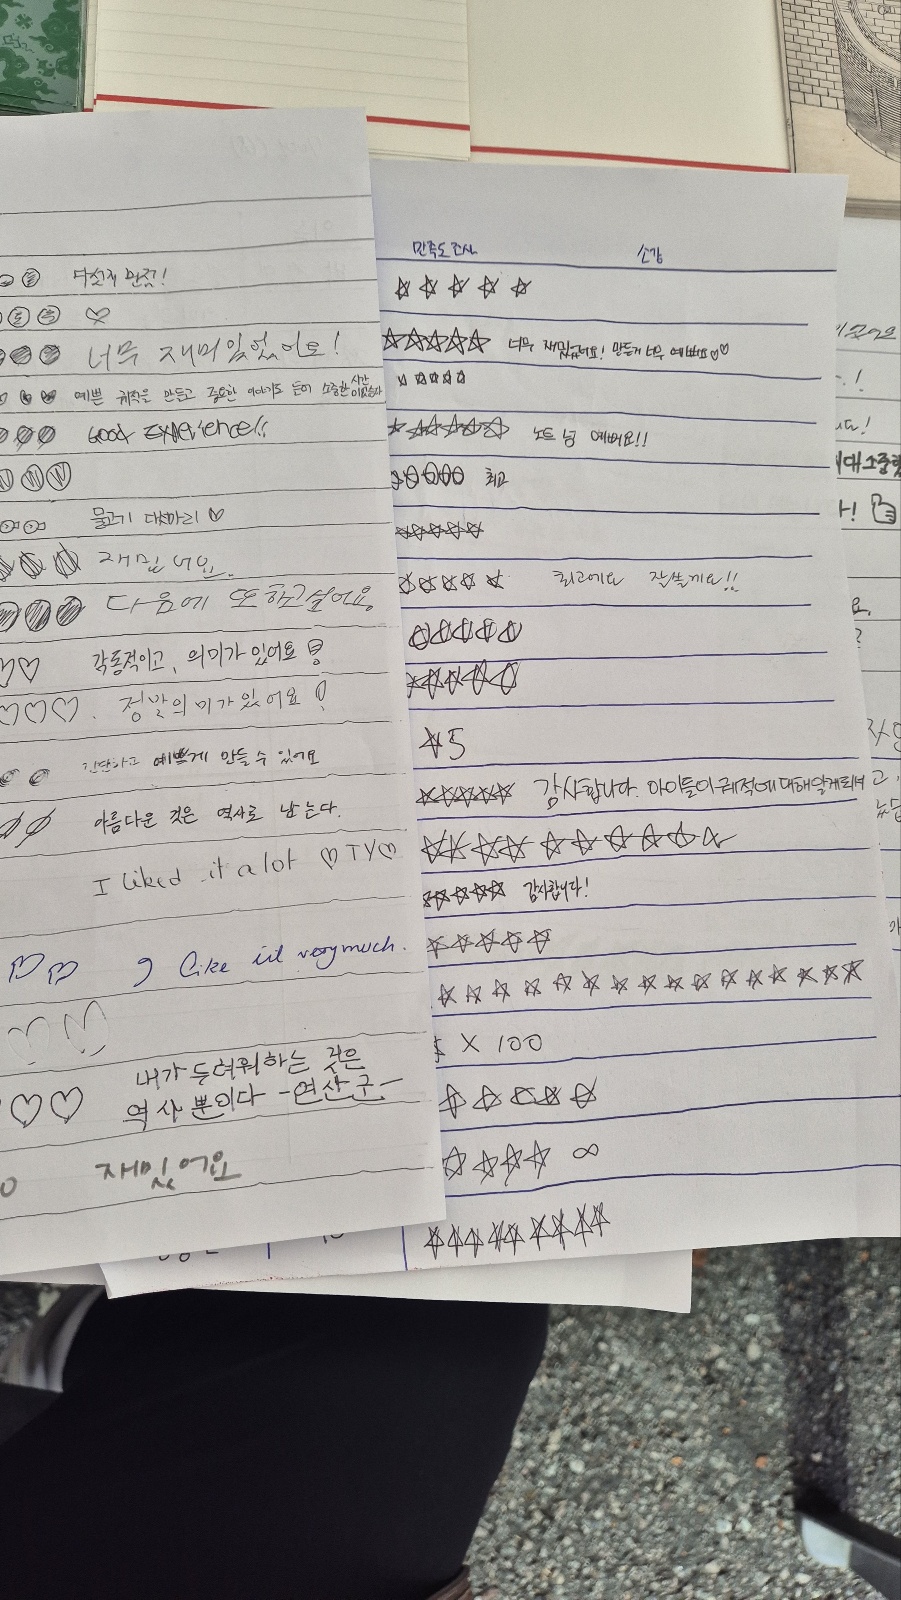 너무 재미있었어요!
예쁜 궤적을 만들고 중요한 이야기도 듣어 소중한 시간 이었습니다
Good Experience!!
물고기 대가리 ♡
재밌어요.
다음에 또 하고싶어요
감동적이고, 의미가 있어요
정말 의미가 있어요
간단하고 예쁘게 만들 수 있어요
아름다운 것은 역사로 남는다.
I liked it a lot ♡TY♡
I like it very much.
내가 두려워하는 것은
역사 뿐이다 -연산군-
재밌어요
만족도조사 소감
너무 재밌었어요! 만들기 너무 예뻐요♡♡
노트 넘 예뻐요!!
최고
최고에요 잘쓸게요!!
5
감사합니다. 아이들이 궤적에 대해 알게되어
감사합니다!
X 100
∞